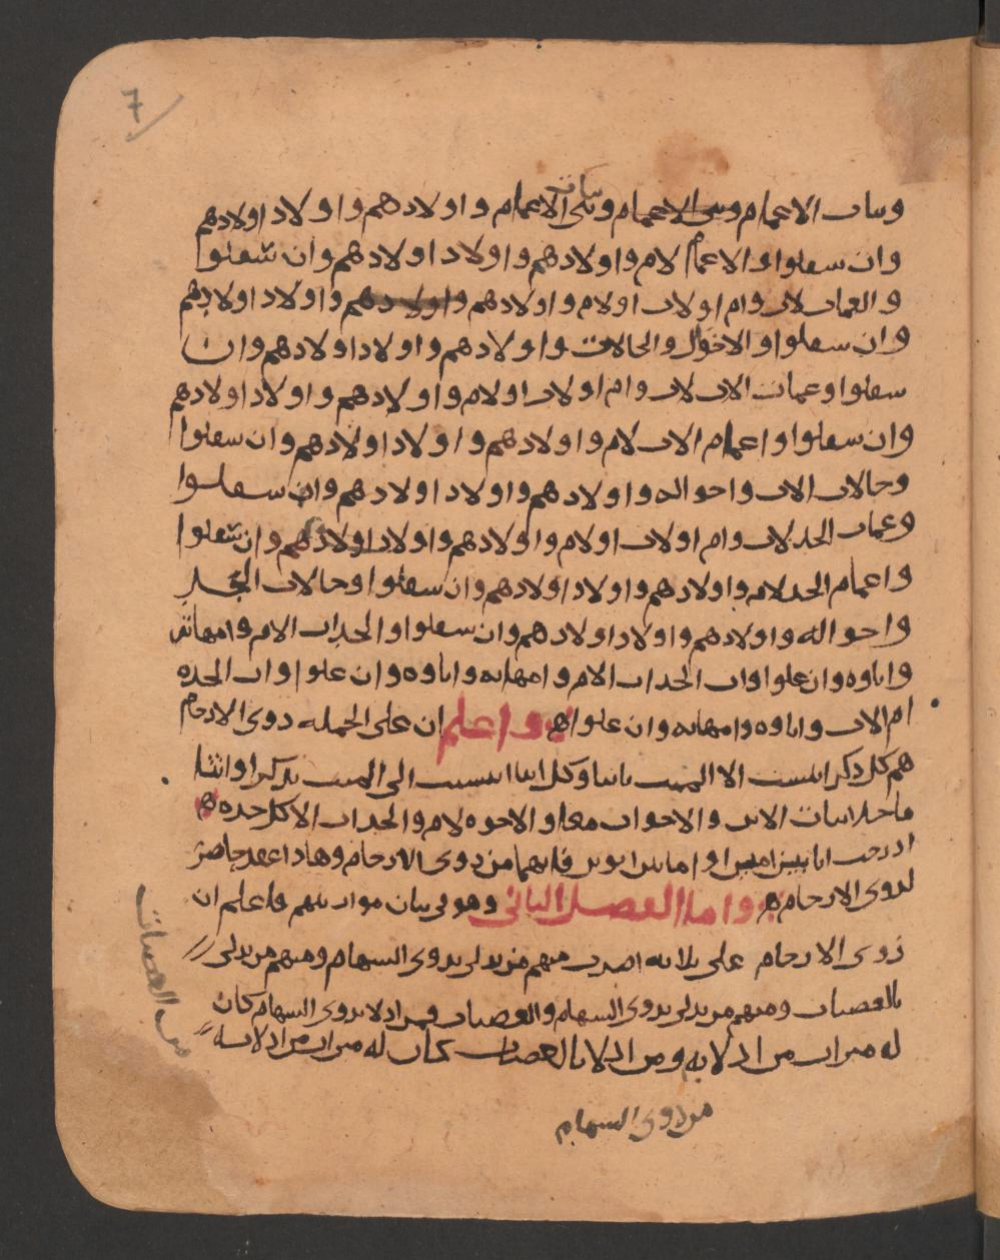 7
وبنات الاعمام وبنى الاعمام وبنى بنات الاعمام واولادهم واولاد اولادهم
وان سفلوا والاعمام لام واولادهم واولاد اولادهم وان سفلوا
والعمات لاب وام او لاب او لام واولادهم واولادهم واولاد اولادهم
وان سفلوا والاخوال والخالات واولادهم واولاد اولادهم وان
سفلوا وعمات الاب لاب وام او لاب او لام واولادهم واولاد اولادهم
وان سفلوا واعمام الاب لام واولادهم واولاد اولادهم وان سفلوا
وخالات الاب واخواله واولادهم واولاد اولادهم وان سفلوا
وعمات الجد لاب وام او لاب او لام واولادهم واولاد اولادهم وان سفلوا
واعمام الجد لامه واولادهم واولاد اولادهم وان سفلوا وخالات الجد
واخواله واولادهم واولاد اولادهم وان سفلوا والجد اب الام وامهاته
واباوه وان علوا واب الجد اب الام وامهاته واباوه وان علوا واب الجده
ام الاب واباوه وامهاته وان علوا هـ واعلم ان على الجمله ذوى الارحام
هم كل ذكر انتسب الا الميت بانثا وكل انثا انتسبت الى الميت بذكر او انثا
ما خلا بنات الابن والاخوات معا والاخوه لام والجدات الا كل جده
ادرجت ابا بين امين او اما بين ابوين فانهما من ذوى الارحام وهاذا عقد حاصر
لذوى الارحام هـ واما الفصل الثانى وهو فى بيان مواريثهم فاعلم ان
ذوى الارحام على ثلاثه اضرب منهم من يدلى بذوى السهام ومنهم من يدلى
بالعصبات ومنهم من يدلى بذوى السهام والعصبات فمن ادلا بذوى السهام كان
له ميراث من ادلا به ومن ادلا بالعصبات كان له ميراث من ادلا به
من ذوى السهام
من العصبات